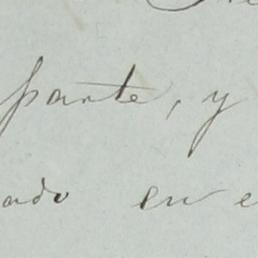 parte, y
ado en e